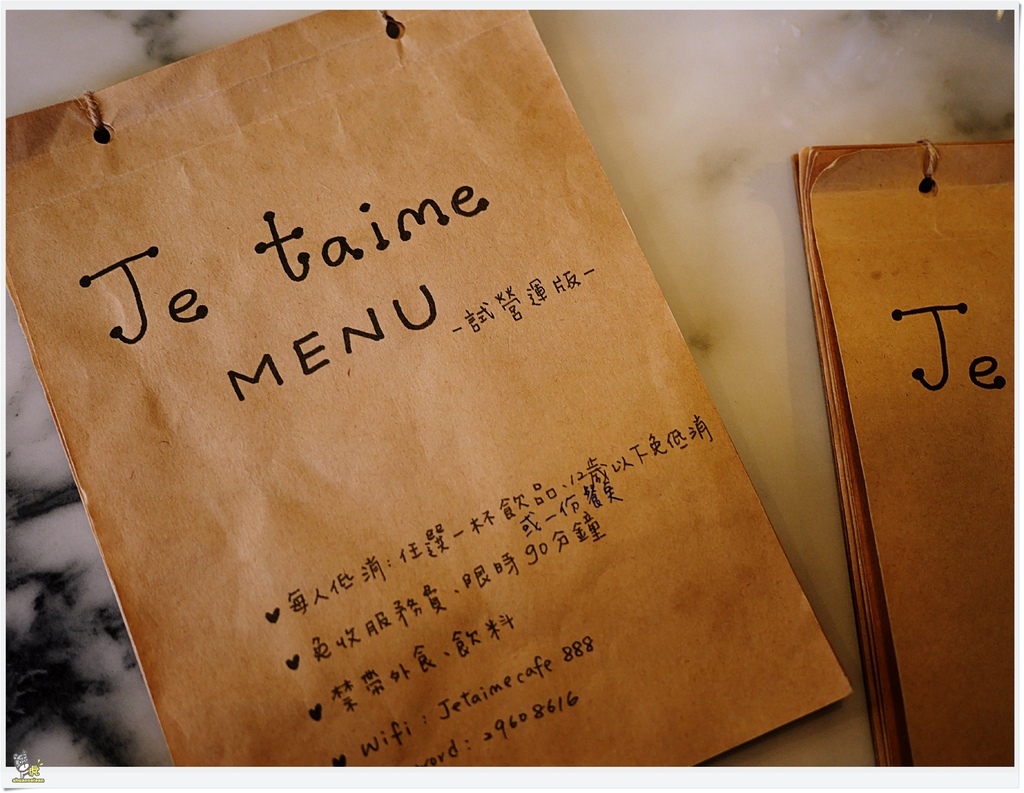 Je taime
MENU -試營運版-
♥ 每人低消：任選一杯飲品、12歲以下免低消
或一份餐
♥ 免收服務費、限時90分鐘
♥ 禁帶外食、飲料
♥ Wifi : Jetaimecafe 888
word : 29608616
Je